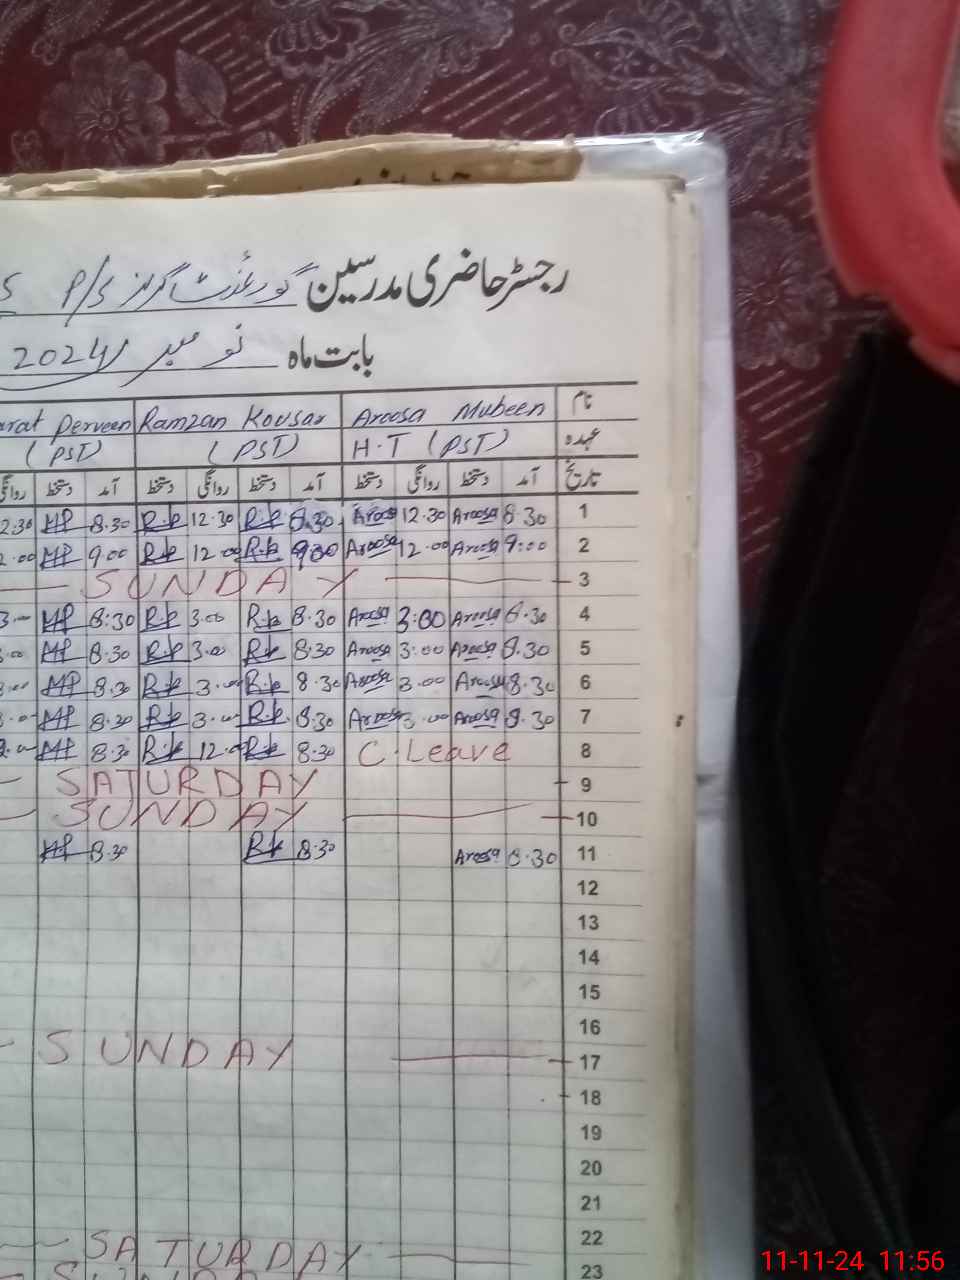 رجسٹر حاضری مدرسین گورنمنٹ گرلز P/S
بابت ماہ نومبر 2024
نام Aroosa Mubeen Ramzan Kousar Perveen
عہدہ H.T (PST) (PST) (PST)
تاریخ آمد دستخط روانگی دستخط آمد دستخط روانگی دستخط آمد دستخط روانگی
1 8.30 Aroosa 12.30 Aroosa 8.30 R.k 12.30 R.k 8.30 MP 2:30
2 9:00 Aroosa 12.00 Aroosa 9:00 R.k 12.00 R.k 9.00 MP 2.00
3 SUNDAY
4 8.30 Aroosa 3:00 Aroosa 8.30 R.k 3.00 R.k 8:30 MP 3.00
5 8.30 Aroosa 3:00 Aroosa 8.30 R.k 3.00 R.k 8.30 MP
6 8.30 Aroosa 3.00 Aroosa 8.30 R.k 3.00 R.k 8.30 MP
7 8.30 Aroosa 3.00 Aroosa 8.30 R.k 3.00 R.k 8.30 MP
8 C.Leave 8.30 R.k 12.00 R.k 8.30 MP
9 SATURDAY
10 SUNDAY
11 8.30 Aroosa 8.30 R.k 8.30 MP
12
13
14
15
16
17 SUNDAY
18
19
20
21
22 SATURDAY
23 SUNDAY
11-11-24 11:56